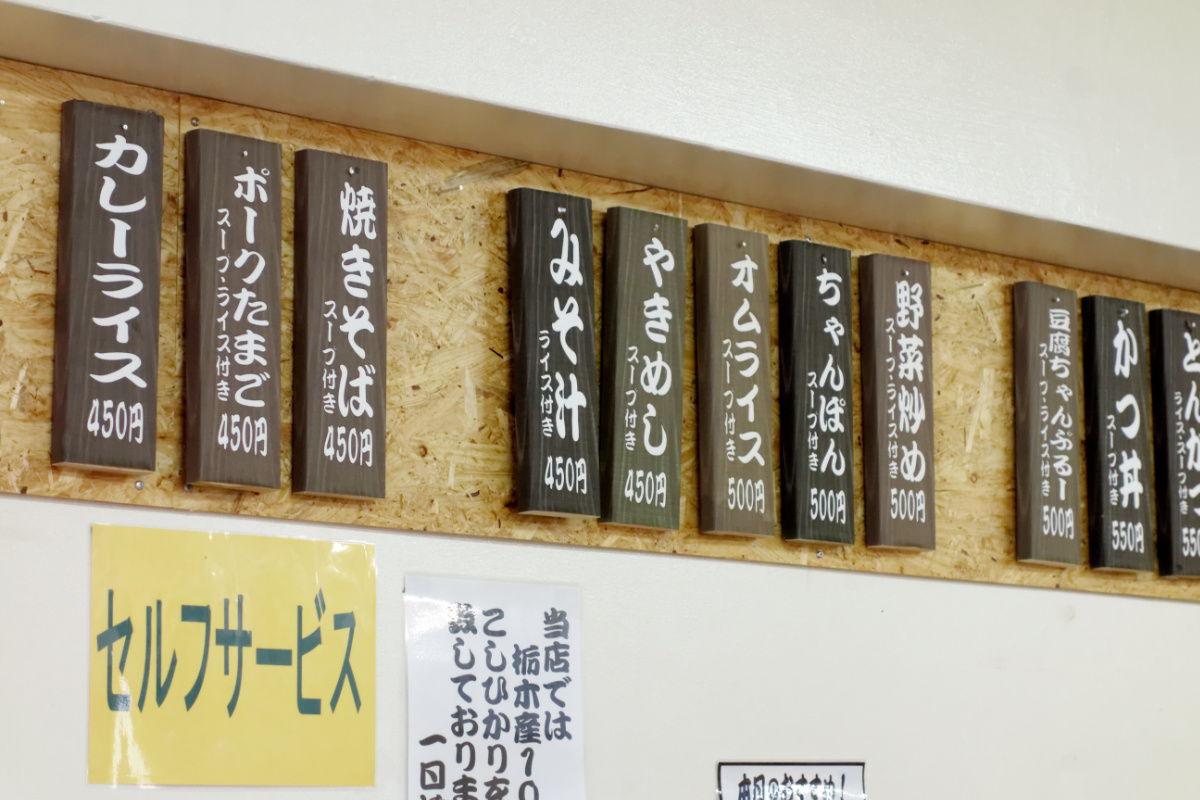 カレーライス
450円
ポークたまご
スープ・ライス付き
450円
焼きそば
スープ付き
450円
みそ汁
ライス付き
450円
やきめし
スープ付き
450円
オムライス
スープ付き
500円
ちゃんぽん
スープ付き
500円
野菜炒め
スープ・ライス付き
500円
豆腐ちゃんぷるー
スープ・ライス付き
500円
かつ丼
スープ付き
550円
とんか
ライス・スープ付き
550
セルフサービス
当店では
栃木産10
こしひかりを
致しておりま
一日
本日のおすすめ！